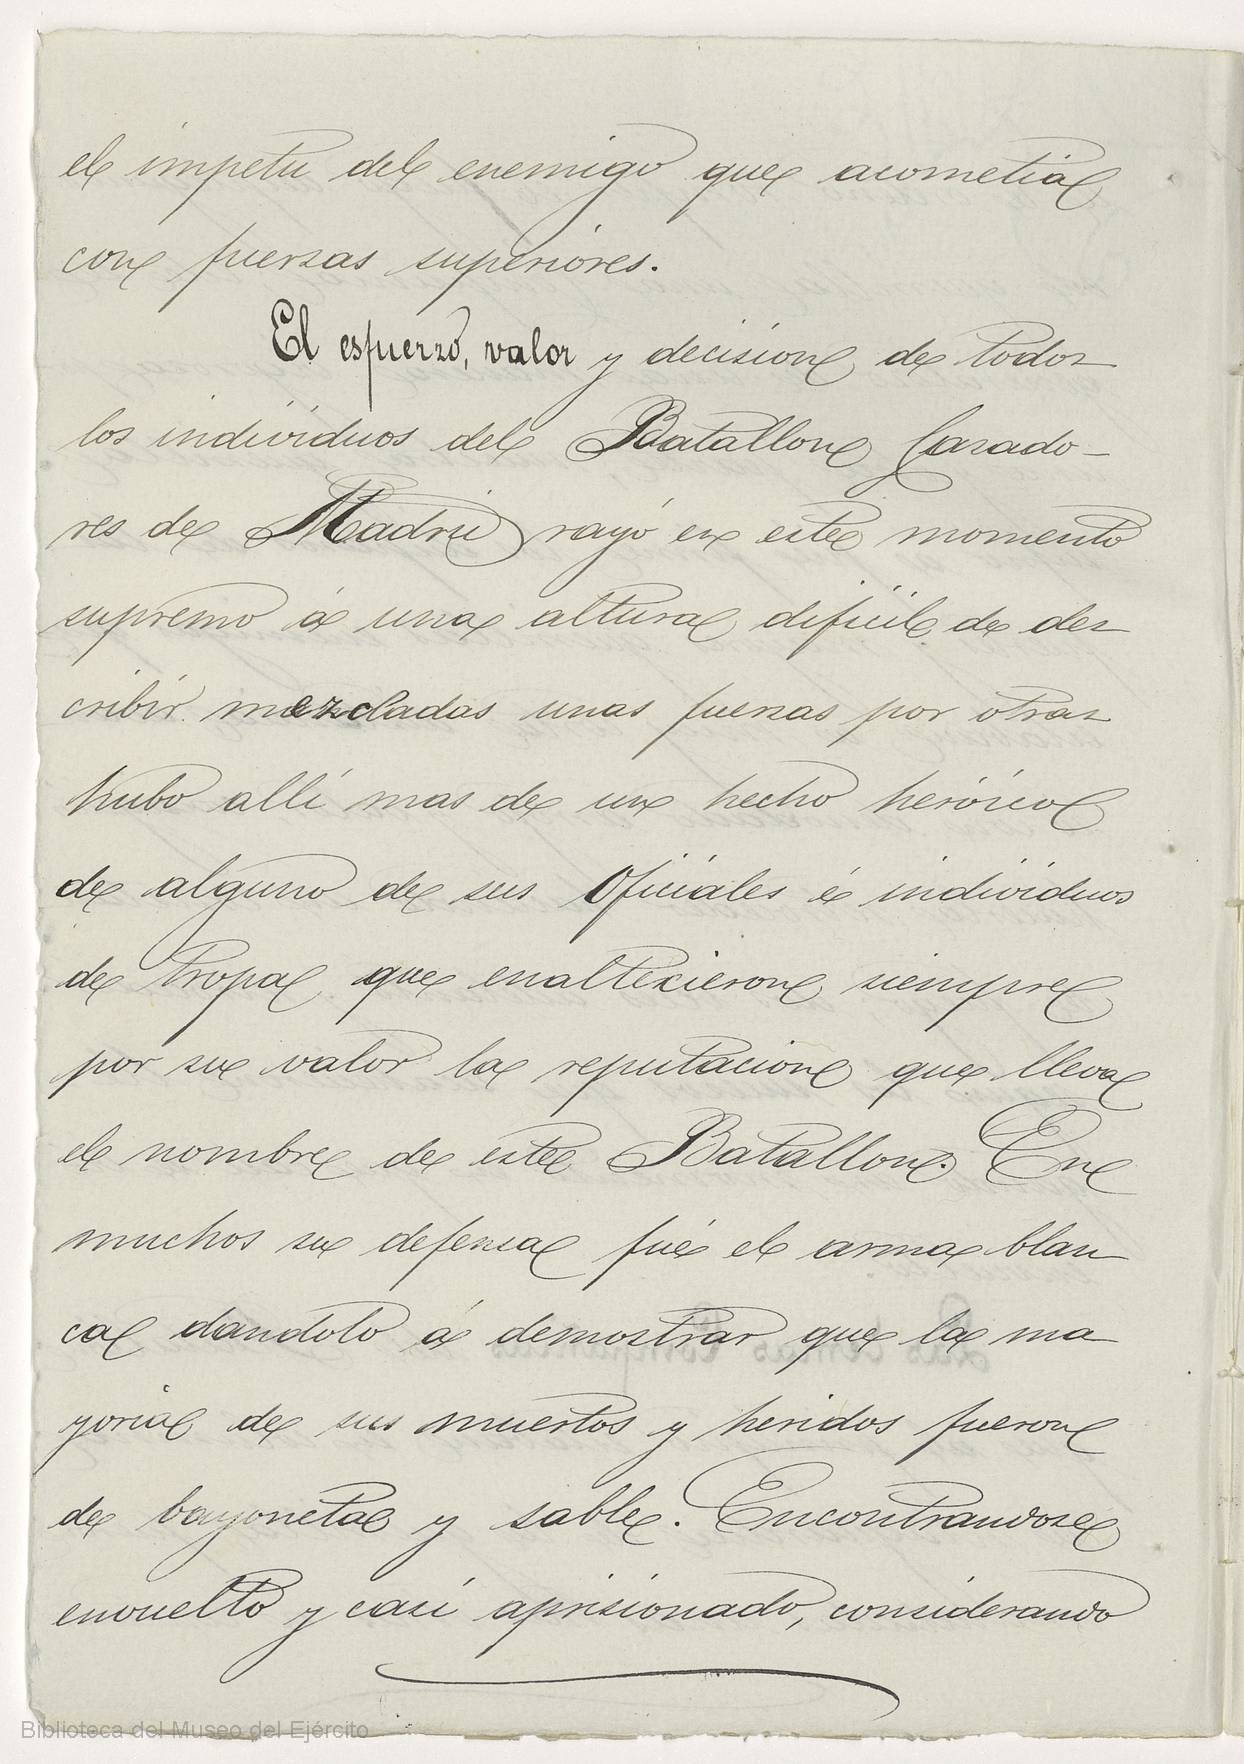 el impetu del enemigo que acometia
con fuerzas superiores.
El esfuerzo, valor y decision de todos
los individuos del Batallon Cazado-
res de Madrid rayó en este momento
supremo á una altura dificil de des
cribir. mezcladas unas fuerzas por otras
hubo allí mas de un hecho heróico
de alguno de sus Oficiales é individuos
de tropa que enaltecieron siempre
por su valor la reputacion que lleva
el nombre de este Batallon. En
muchos su defensa fué el arma blan
ca dandolo á demostrar que la ma
yoria de sus muertos y heridos fueron
de bayoneta y sable. Encontrandose
envuelto y casi aprisionado, considerando
Biblioteca del Museo del Ejército